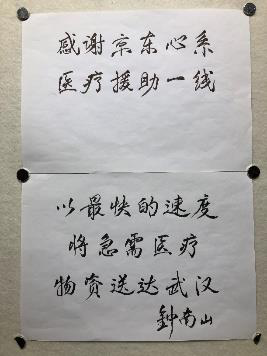 感谢京东心系
医疗援助一线
以最快的速度
将急需医疗
物资送达武汉
鍾南山